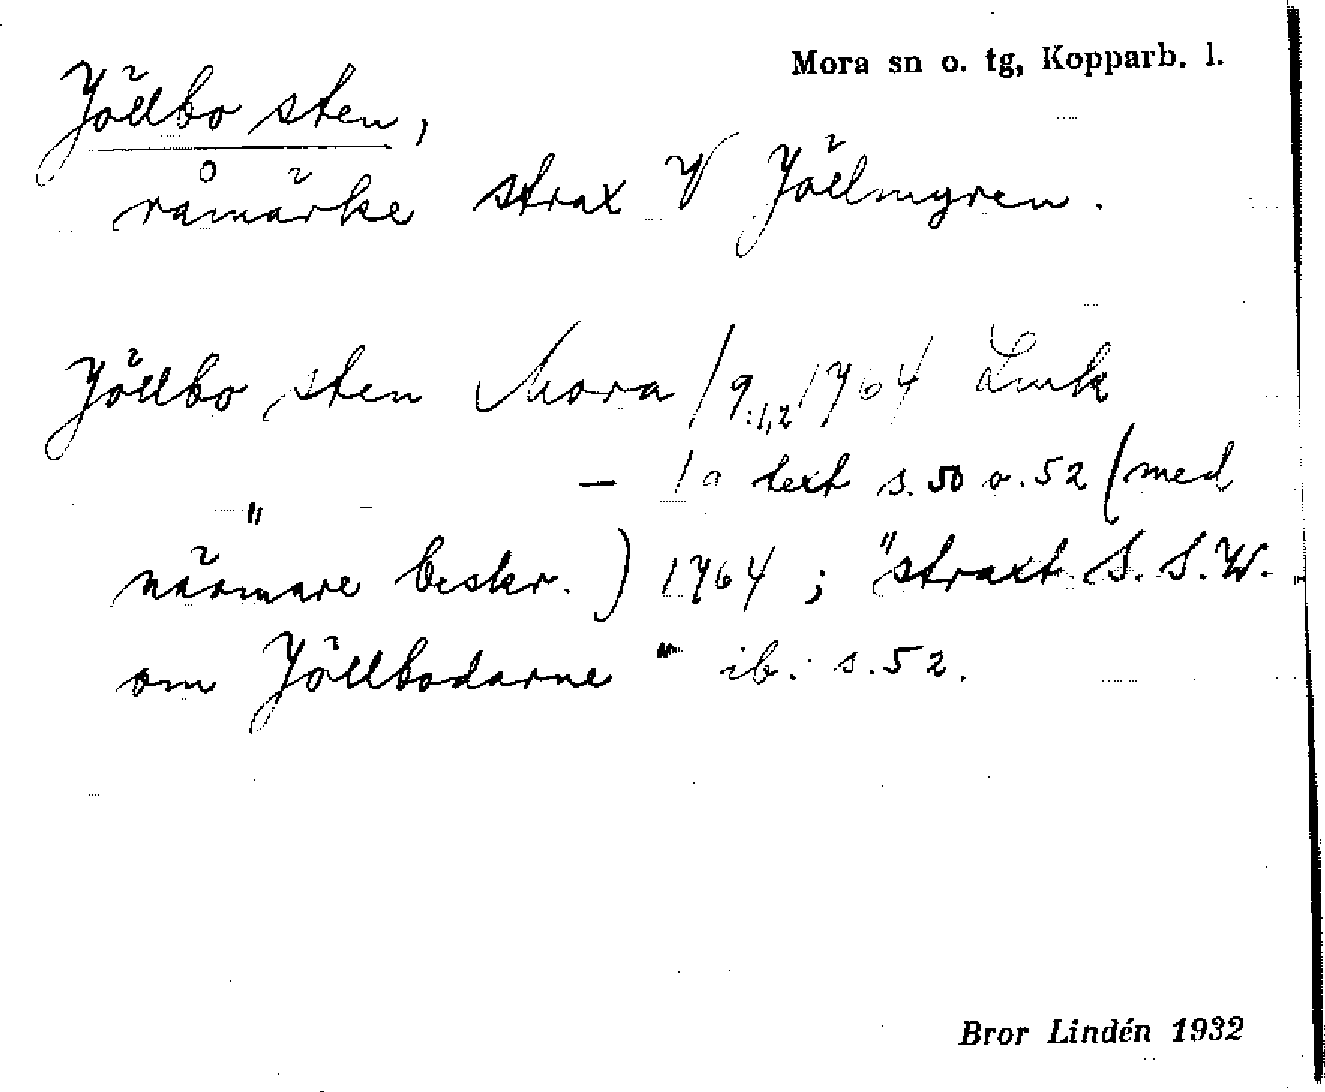 Mora sn o. tg, Kopparb. l.
Jöllbo sten,
råmärke strax V Jöllmyren.
Jöllbo sten Mora / 9:1,2 1764 Lmk
" – 10 text s. 50 o. 52 (med
närmare beskr.) 1764 ; "straxt S. S. W.
om Jöllbodarne" ib. s. 52.
Bror Lindén 1932